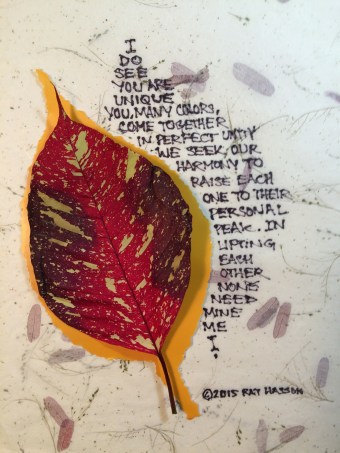 I
DO
SEE
YOU ARE
UNIQUE
YOU, MANY COLORS,
COME TOGETHER
IN PERFECT UNITY
WE SEEK, OUR
HARMONY TO
RAISE EACH
ONE TO THEIR
PERSONAL
PEAK. IN
LIFTING
EACH
OTHER
NONE
NEED
MINE
ME
I.
©2015 RAY HASSON